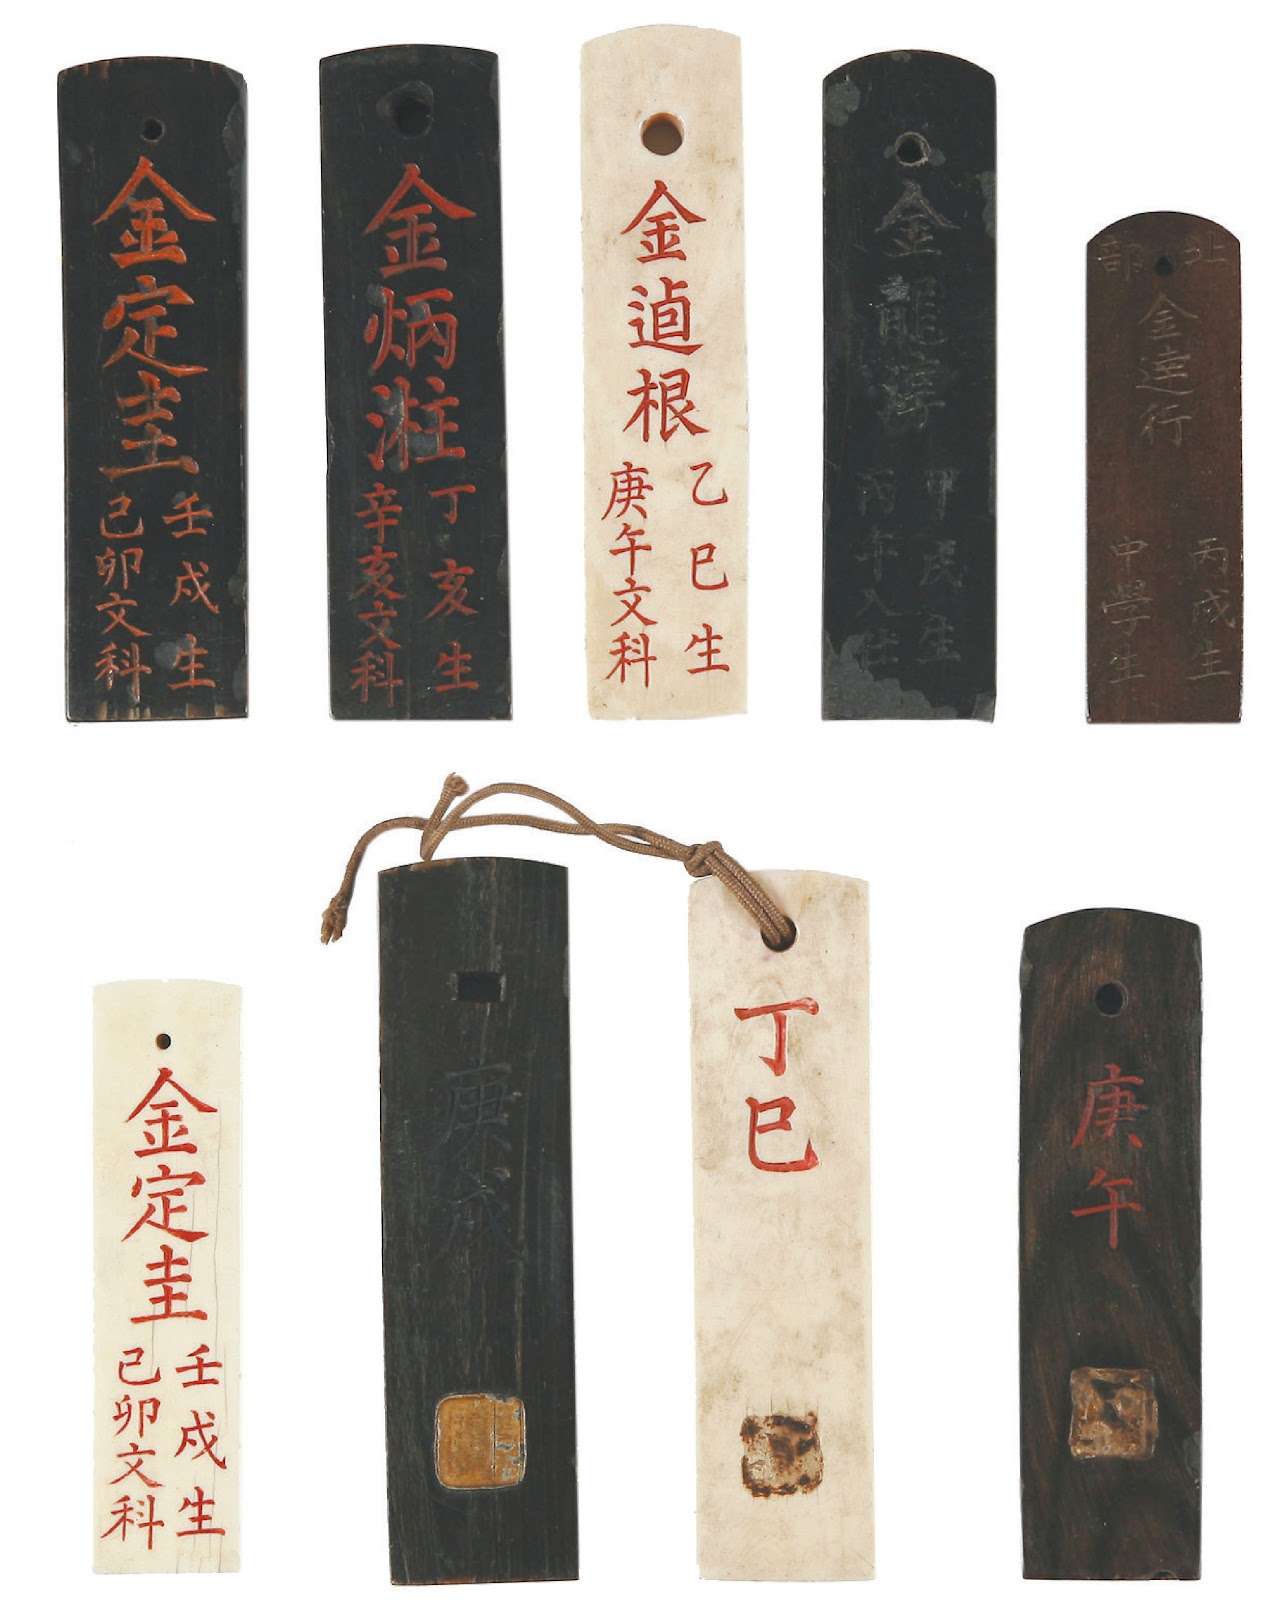 金定圭
壬戌生
己卯文科
金炳溎
丁亥生
辛亥文科
金逌根
乙巳生
庚午文科
金龍
甲戌生
丙午入仕
北部
金達行
丙戌生
中學生
金定圭
壬戌生
己卯文科
庚戌
丁巳
庚午